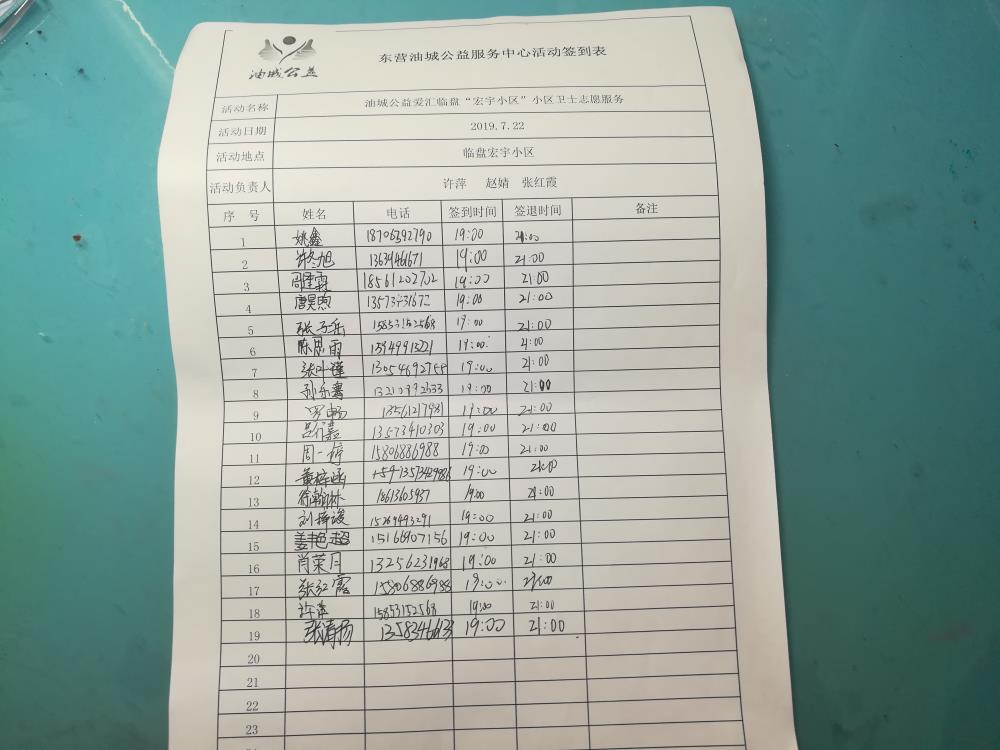 油城公益
东营油城公益服务中心活动签到表
活动名称 油城公益爱汇临盘“宏宇小区”小区卫士志愿服务
活动日期 2019.7.22
活动地点 临盘宏宇小区
活动负责人 许萍 赵婧 张红霞
序 号 姓名 电话 签到时间 签退时间 备注
1 姚鑫 18706592790 19:00 21:00
2 13639461671 19:00 21:00
3 18561202702 19:00 21:00
4 19:00 21:00
5 张子岳 15853152568 19:00 21:00
6 陈思雨 15949913221 19:00 21:00
7 张叶谨 19:00 21:00
8 19:00 21:00
9 罗畅 19:00 21:00
10 13573410303 19:00 21:00
11 周一婷 15806886988 19:00 21:00
12 黄梓涵 19:00 21:00
13 18613605937 19:00 21:00
14 15269493291 19:00 21:00
15 姜艳超 15166907156 19:00 21:00
16 肖荣月 13256231968 19:00 21:00
17 张红霞 15806886988 19:00 21:00
18 许萍 15853152568 19:00 21:00
19 张清杨 19:00 21:00
20
21
22
23